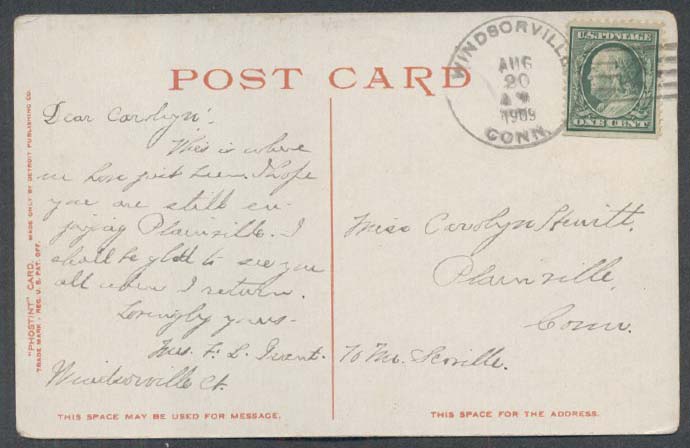 POST CARD
WINDSORVILLE
AUG
20
1909
CONN.
U.S. POSTAGE
ONE CENT
"PHOSTINT" CARD. MADE ONLY BY DETROIT PUBLISHING CO.
TRADE MARK - REG. U. S. PAT. OFF.
Dear Carolyn:
This is where
we have just been. I hope
you are still en-
joying Plainville. I
shall be glad to see you
all when I return.
Lovingly yours-
Mrs. F. L. Grant.
Windsorville Ct.
Miss Carolyn Hewitt.
Plainville,
Conn.
To Mr. Scoville.
THIS SPACE MAY BE USED FOR MESSAGE.
THIS SPACE IS FOR THE ADDRESS.